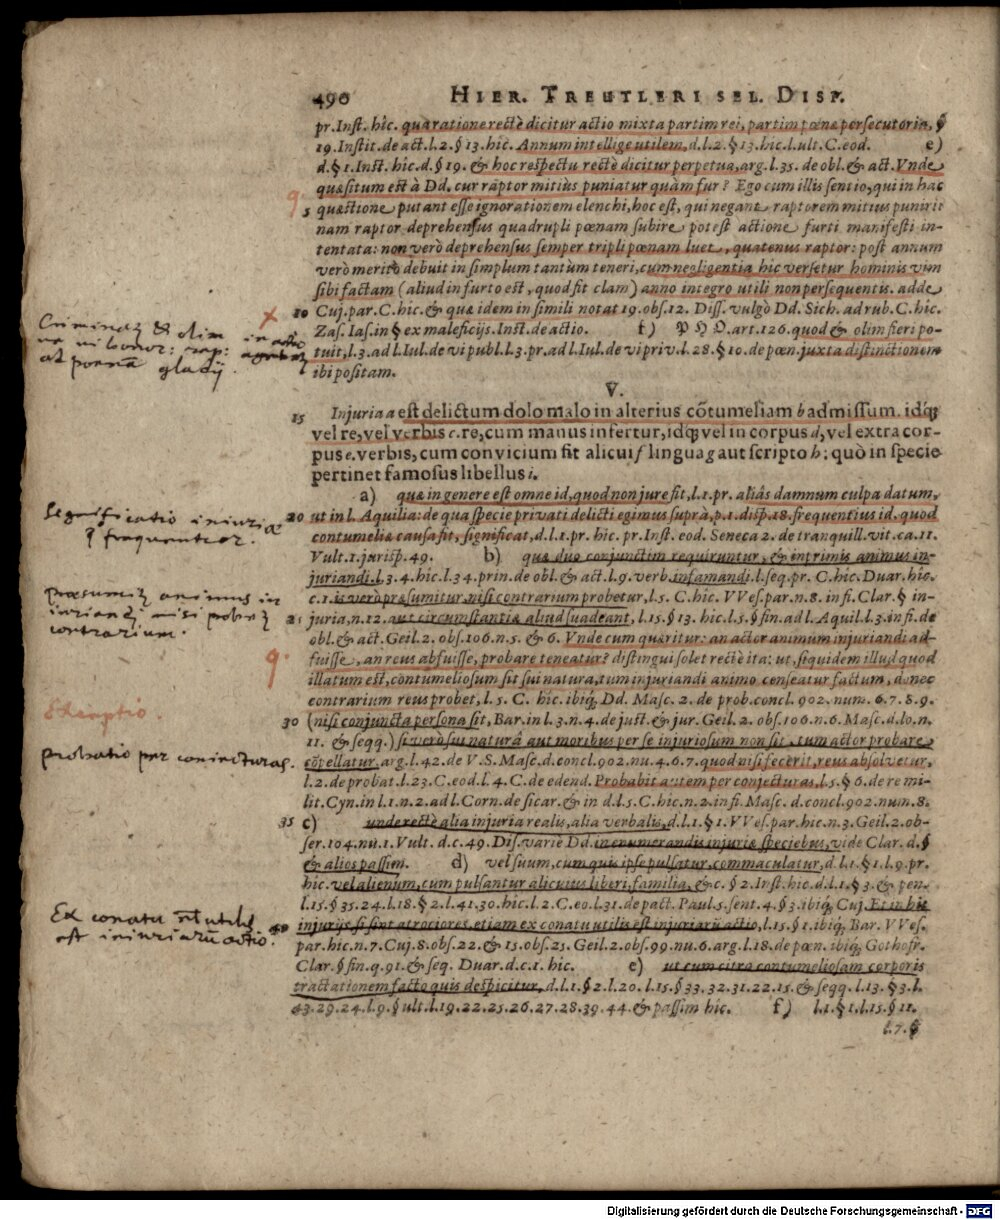 490 HIER. TREUTLERI SEL. DISP.
pr. Inst. hîc. qua ratione rectè dicitur actio mixta partim rei, partim pœnæ persecutoria, §
19. Instit. de act. l. 2. § 13. hic. Annum intellige utilem, d. l. 2. § 13. hic. l. ult. C. eod. e)
d. § 1. Inst. hic. d. § 19. & hoc respectu rectè dicitur perpetua, arg. l. 35. de obl. & act. Vnde
quæsitum est à Dd. cur raptor mitiùs puniatur quàm fur? Ego cum illis sentio, qui in hac
q. 5 quæstione putant esse ignorationem elenchi, hoc est, qui negant raptorem mitius puniri:
nam raptor deprehensus quadrupli pœnam subire potest actione furti manifesti in-
tentata: non verò deprehensus semper tripli pœnam luet, quatenus raptor: post annum
verò meritò debuit in simplum tantùm teneri, cum negligentia hic versetur hominis vim
sibi factam (aliud in furto est, quod fit clam) anno integro utili non persequentis. adde
10 Cuj. par. C. hic. & quæ idem in simili notat 19. obs. 12. Diss. vulgò Dd. Sich. ad rub. C. hic.
Zas. Ias. in § ex maleficijs. Inst. de actio. f) P H O. art. 126. quod & olim fieri po-
tuit, l. 3. ad l. Iul. de vi publ. l. 3. pr. ad l. Iul. de vi priv. l. 28. § 10. de pœn. juxta distinctionem
ibi positam.
V.
15 Injuria a est delictum dolo malo in alterius cōtumeliam b admissum. idq́;
vel re, vel verbis c. re, cum manus infertur, idq́; vel in corpus d, vel extra cor-
pus e. verbis, cum convicium fit alicui f lingua g aut scripto h; quò in specie
pertinet famosus libellus i.
a) quæ in genere est omne id, quod non jure fit, l. 1. pr. aliâs damnum culpa datum,
20 ut in l. Aquilia: de qua specie privati delicti egimus suprà, p. 1. disp. 18. frequentius id. quod
contumeliæ causa fit, significat, d. l. 1. pr. hic. pr. Inst. eod. Seneca 2. de tranquill. vit. ca. 11.
Vult. 1. jurisp. 49. b) quæ duo conjunctim requiruntur, & inprimis animus in-
juriandi. l. 3. 4. hic. l. 34. prin. de obl. & act. l. 9. verb. infamandi. l. seq. pr. C. hic. Duar. hic.
c. 1. is verò præsumitur, nisi contrarium probetur, l. 5. C. hic. VVes. par. n. 8. in fi. Clar. § in-
25 juria, n. 12. aut circumstantiæ aliud suadeant, l. 15. § 13. hic. l. 5. § fin. ad l. Aquil. l. 3. in fi. de
obl. & act. Geil. 2. obs. 106. n. 5. & 6. Vnde cum quæritur: an actor animum injuriandi ad-
fuisse, an reus abfuisse, probare teneatur? distingui solet rectè ita: ut, siquidem illud quod
illatum est, contumeliosum sit sui natura, tum injuriandi animo censeatur factum, donec
contrarium reus probet, l. 5. C. hic. ibiq́; Dd. Masc. 2. de prob. concl. 902. num. 6. 7. 8. 9.
30 (nisi conjuncta persona sit, Bar. in l. 3. n. 4. de just. & jur. Geil. 2. obs. 106. n. 6. Masc. d. lo. n.
11. & seqq.) si verò sui naturâ aut moribus per se injuriosum non sit, tum actor probare
cōpellatur. arg. l. 42. de V. S. Masc. d. concl. 902. nu. 4. 6. 7. quod nisi fecerit, reus absolvetur,
l. 2. de probat. l. 23. C. eod. l. 4. C. de edend. Probabit autem per conjecturas, l. 5. § 6. de re mi-
lit. Cyn. in l. 1. n. 2. ad l. Corn. de sicar. & in d. l. 5. C. hic. n. 2. in fi. Masc. d. concl. 902. num. 8.
35 c) unde rectè alia injuria realis, alia verbalis, d. l. 1. § 1. VVes. par. hic. n. 3. Geil. 2. ob-
ser. 104. nu. 1. Vult. d. c. 49. Dis. variè Dd. in enumerandis injuriæ speciebus, vide Clar. d. §
& alios passim. d) vel suum, cum quis ipse pulsatur, commaculatur, d. l. 1. § 1. l. 9. pr.
hic. vel alienum, cum pulsantur alicuius liberi, familia, &c. § 2. Inst. hic. d. l. 1. § 3. & pen.
l. 15. § 35. 24. l. 18. § 2. l. 41. 30. hic. l. 2. C. eo. l. 31. de pact. Paul. 5. sent. 4. § 3. ibiq́; Cuj. Et in his
40 injurijs si sint atrociores, etiam ex conatu utilis est injuriarū actio, l. 15. § 1. ibiq́; Bar. VVes.
par. hic. n. 7. Cuj. 8. obs. 22. & 15. obs. 25. Geil. 2. obs. 99. nu. 6. arg. l. 18. de pœn. ibiq́; Gothofr.
Clar. § fin. q. 91. & seq. Duar. d. c. 1. hic. e) ut cum citra contumeliosam corporis
tractationem facto quis despicitur, d. l. 1. § 2. l. 20. l. 15. § 33. 32. 31. 22. 15. & seqq. l. 13. § 3. l.
43. 29. 24. l. 9. § ult. l. 19. 22. 25. 26. 27. 28. 39. 44. & passim hic. f) l. 1. § 1. l. 15. § 11.
l. 7. §
Significatio iniuriæ
frequentior.
præsumitur animus in
iuriandi nisi probetur
contrarium.
q.
Exceptio.
probatio per coniecturas.
Ex conatu utilis
est iniuriarū actio.
Digitalisierung gefördert durch die Deutsche Forschungsgemeinschaft - DFG